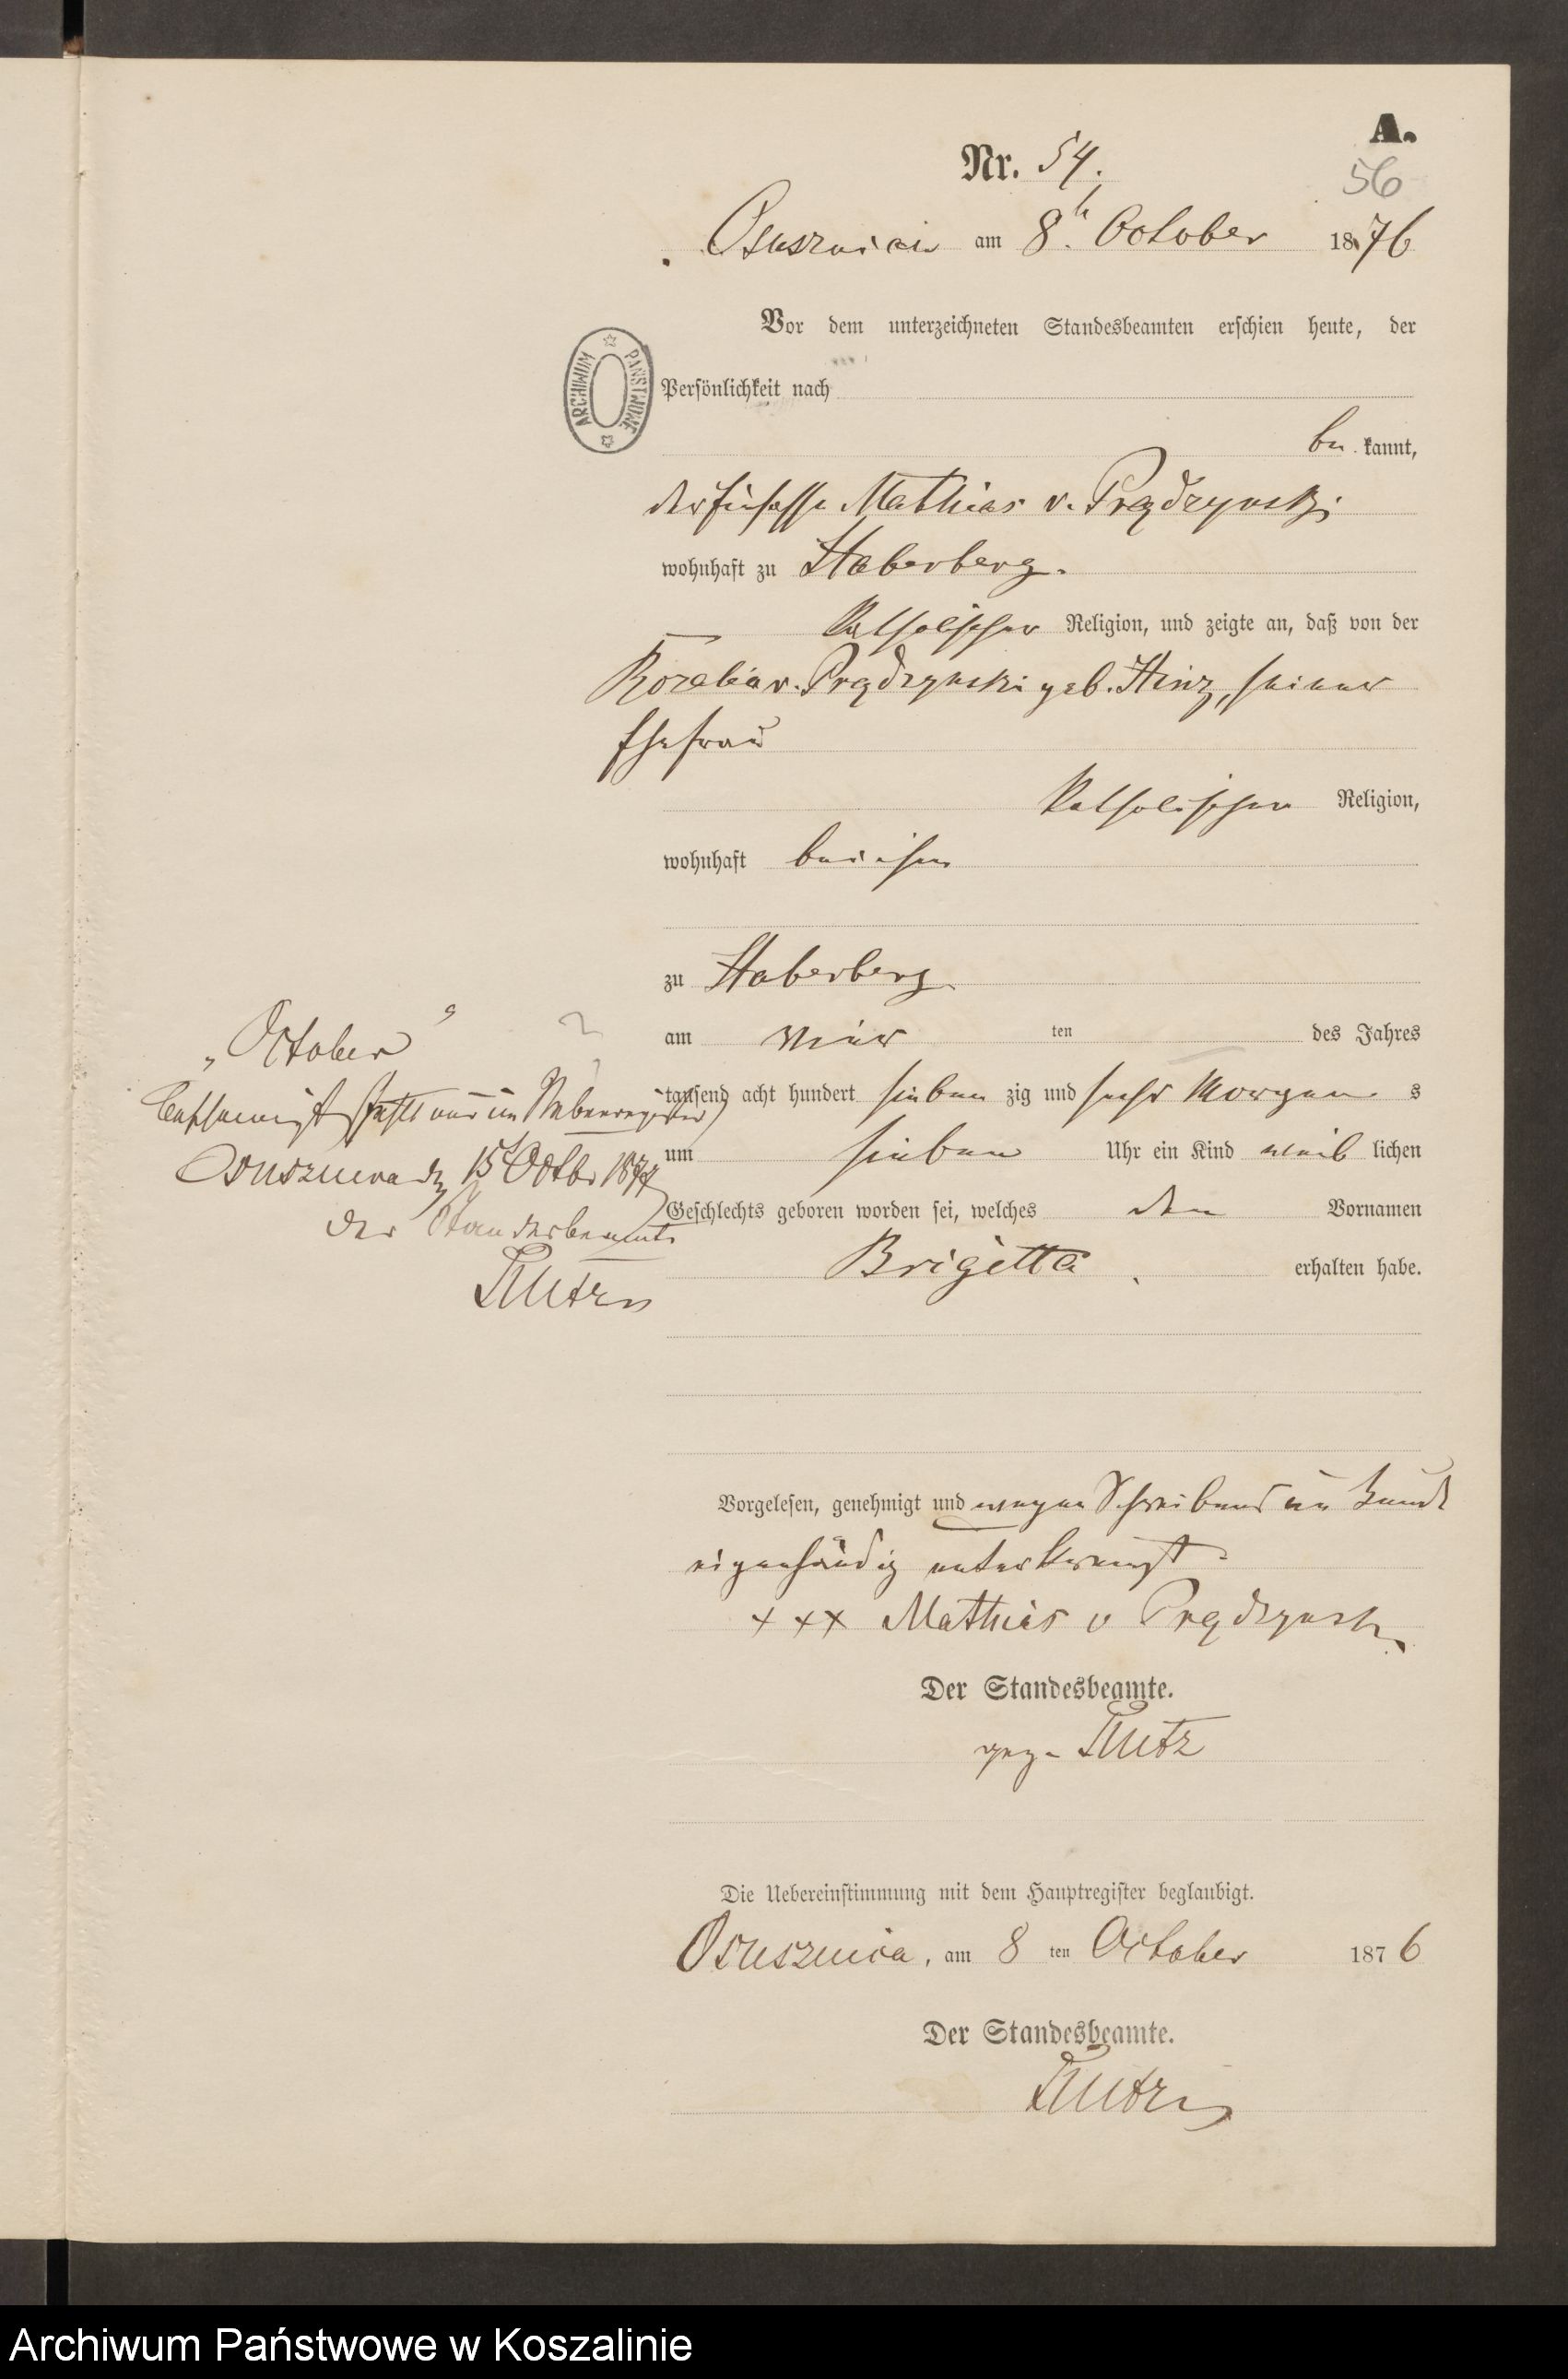 A.
Nr. 54.
56
Osusznica am 8t. October 1876
Vor dem unterzeichneten Standesbeamten erschien heute, der
Persönlichkeit nach
be kannt,
der Einsasse Mathias v. Prądzynski
wohnhaft zu Haberberg.
katholischer Religion, und zeigte an, daß von der
Rozalia v. Prądzynski geb. Hinz, seiner
Ehefrau
katholischer Religion,
wohnhaft bei ihm
zu Haberberg
am vier ten des Jahres
tausend acht hundert sieben zig und sechs Morgens
um sieben Uhr ein Kind weib lichen
Geschlechts geboren worden sei, welches den Vornamen
Brigitta erhalten habe.
„October“
fehlt nur im Nebenregister
Osusznica d 15 Octbr 1877
Der Standesbeamte
Vorgelesen, genehmigt und wegen Schreibens un kunde
eigenhändig unterkreuzt.
+++ Mathias v Prądzynski
Der Standesbeamte.
gez.
Die Uebereinstimmung mit dem Hauptregister beglaubigt.
Osusznica, am 8 ten October 1876
Der Standesbeamte.
ARCHIWUM PAŃSTWOWE
Archiwum Państwowe w Koszalinie